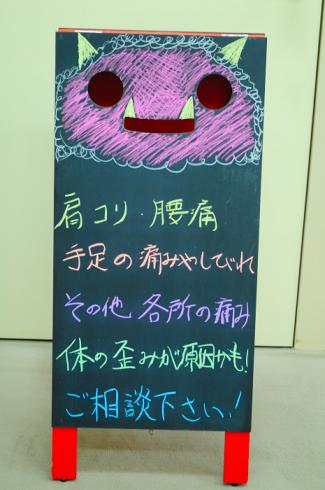 肩コリ・腰痛
手足の痛みやしびれ
その他 各所の痛み
体の歪みが原因かも!
ご相談下さい!